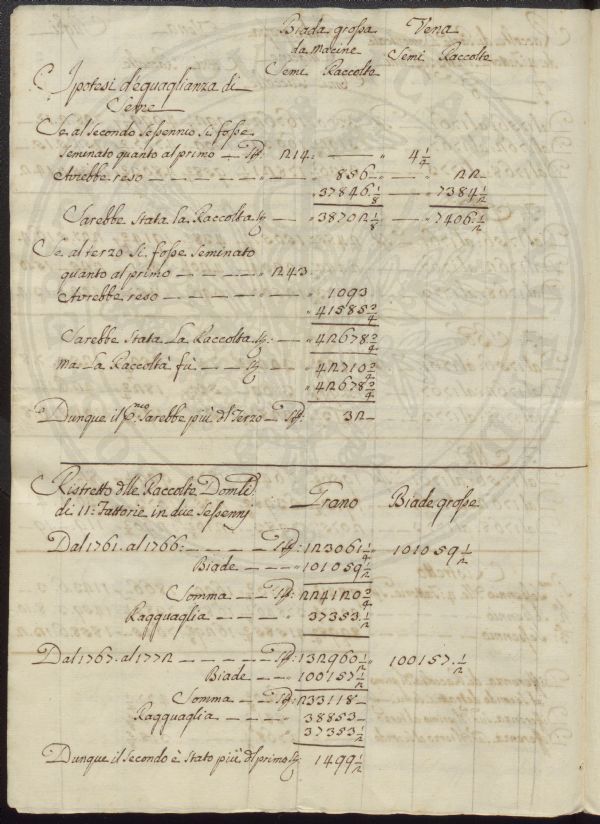 Biada grossa Vena
da macine Semi Raccolte
Semi Raccolte
Ipotesi d'eguaglianza di
Seme
Se al secondo Sessennio si fosse
Seminato quanto al primo — 214: — " 4 1/4
Avrebbe reso — — — — " — 856 — " — 22 —
" 37846. 1/8 — " 7384 1/2
Sarebbe stata la Raccolta — " 38702 1/8 — " 7406. 1/2
Se al terzo si fosse Seminato
quanto al primo — — — — — " 243.
Avrebbe reso — — — — — " 1093
" 41585 3/4
Sarebbe stata la Raccolta — " 42678 3/4
ma la Raccolta fù — — " 42710 3/4
" 42678 3/4
Dunque il Sarebbe più del Terzo — 32 —
Ristretto delle Raccolte
di 11: Fattorie in due Sessennj Grano Biade grosse
Dal 1761. al 1766: — — — — — 123061 1/4 " 101059 1/2
Biade — — " 101059 1/2
Somma — — 224120 3/4
Ragguaglia — — — 37353. 1/2
Dal 1767. al 1772 — — — — — 132960 1/2 " 100157. 1/2
Biade — — " 100157 1/2
Somma — — 233118 —
Ragguaglia — — — — 38853 —
37353 1/2
Dunque il secondo è stato più del primo 1499 1/2